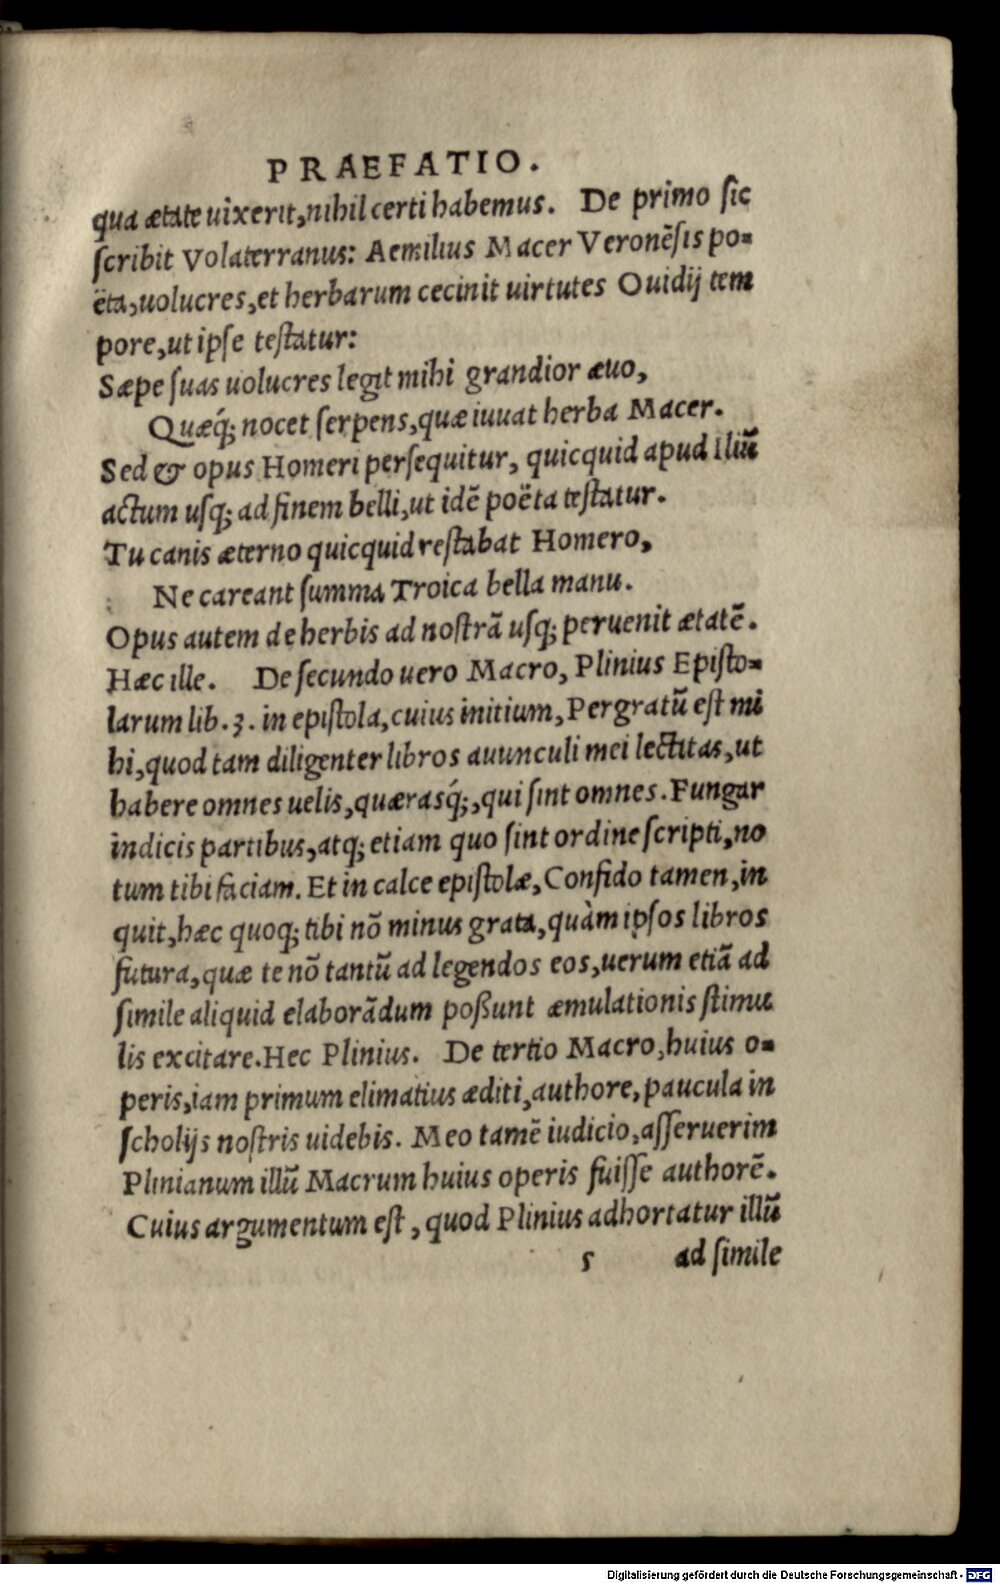 PRAEFATIO.
qua ætate uixerit, nihil certi habemus. De primo sic
scribit Volaterranus: Aemilius Macer Veronēsis po-
ëta, uolucres, et herbarum cecinit uirtutes Ouidij tem
pore, ut ipse testatur:
Sæpe suas uolucres legit mihi grandior æuo,
Quæq́; nocet serpens, quæ iuuat herba Macer.
Sed & opus Homeri persequitur, quicquid apud Iliū
actum usq; ad finem belli, ut idē poëta testatur.
Tu canis æterno quicquid restabat Homero,
Ne careant summa Troica bella manu.
Opus autem de herbis ad nostrā usq; peruenit ætatē.
Hæc ille. De secundo uero Macro, Plinius Episto-
larum lib. 3. in epistola, cuius initium, Pergratū est mi
hi, quod tam diligenter libros auunculi mei lectitas, ut
habere omnes uelis, quærasq́;, qui sint omnes. Fungar
indicis partibus, atq; etiam quo sint ordine scripti, no
tum tibi faciam. Et in calce epistolæ, Confido tamen, in
quit, hæc quoq; tibi nō minus grata, quàm ipsos libros
futura, quæ te nō tantū ad legendos eos, uerum etiā ad
simile aliquid elaborādum poßunt æmulationis stimu
lis excitare. Hec Plinius. De tertio Macro, huius o-
peris, iam primum elimatius æditi, authore, paucula in
scholijs nostris uidebis. Meo tamē iudicio, asseruerim
Plinianum illū Macrum huius operis fuisse authorē.
Cuius argumentum est, quod Plinius adhortatur illū
5 ad simile
Digitalisierung gefördert durch die Deutsche Forschungsgemeinschaft - DFG